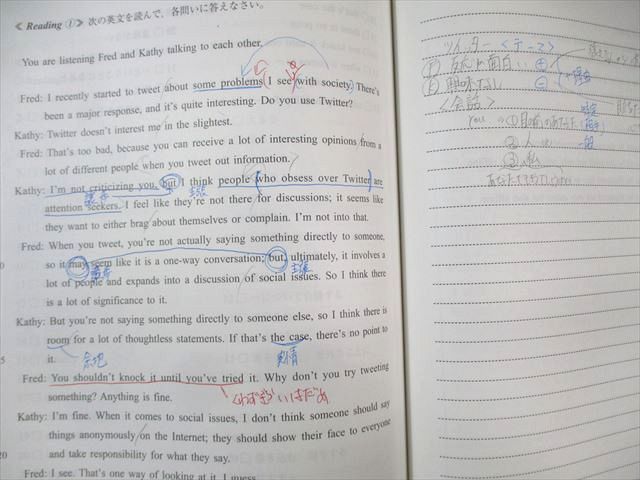 ≪ Reading ①≫ 次の英文を読んで，各問いに答えなさい。
You are listening Fred and Kathy talking to each other.
Fred: I recently started to tweet about some problems I see with society. There's
been a major response, and it's quite interesting. Do you use Twitter?
Kathy: Twitter doesn't interest me in the slightest.
Fred: That's too bad, because you can receive a lot of interesting opinions from a
lot of different people when you tweet out information.
Kathy: I'm not criticizing you, but I think people who obsess over Twitter are
譲歩 主張
attention seekers. I feel like they're not there for discussions; it seems like
they want to either brag about themselves or complain. I'm not into that.
Fred: When you tweet, you're not actually saying something directly to someone,
so it may seem like it is a one-way conversation; but, ultimately, it involves a
譲歩 主張
lot of people and expands into a discussion of social issues. So I think there
is a lot of significance to it.
Kathy: But you're not saying something directly to someone else, so I think there is
room for a lot of thoughtless statements. If that's the case, there's no point to
5
it.
余地 事情
Fred: You shouldn't knock it until you've tried it. Why don't you try tweeting
something? Anything is fine.
Kathy: I'm fine. When it comes to social issues, I don't think someone should say
things anonymously on the Internet; they should show their face to everyone
20 and take responsibility for what they say.
Fred: I see. That's one way of looking at it, I guess.
ツイッター <テーマ>
面白い ＋
興味なし －
<会話>
you
②人
一般
③私